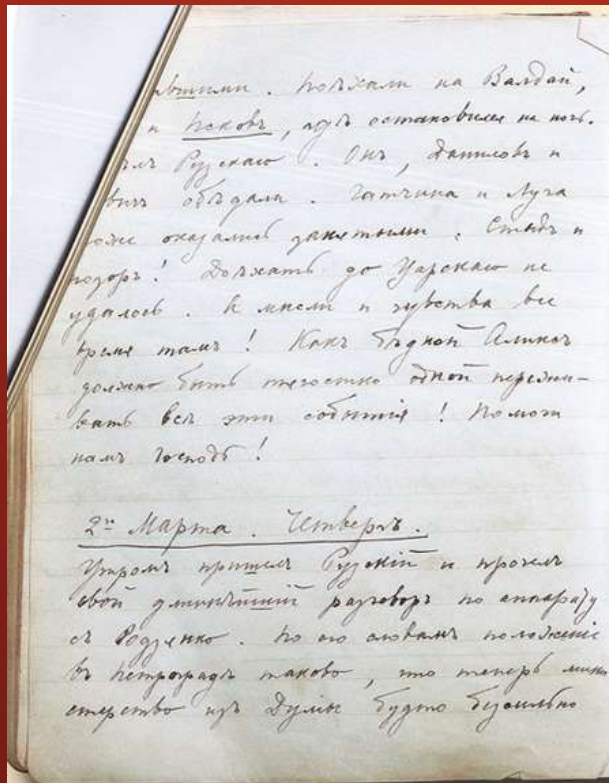 ившими. Поѣхали на Валдай,
и Псковъ, гдѣ остановился на ночь.
Рузскаго. Онъ, Даниловъ и
обѣдали. Гатчина и Луга
тоже оказались занятыми. Стыдъ и
позоръ! Доѣхать до Царскаго не
удалось. А мысли и чувства все
время тамъ! Какъ бѣдной Аликсъ
должно быть тягостно одной пережи-
вать всѣ эти событія! Помоги
намъ Господь!
2го Марта. Четвергъ.
Утромъ пришелъ Рузскій и прочелъ
свой длиннѣйшій разговоръ по аппарату
съ Родзянко. По его словамъ положеніе
въ Петроградѣ таково, что теперь мини
стерство изъ Думы будто безсильно